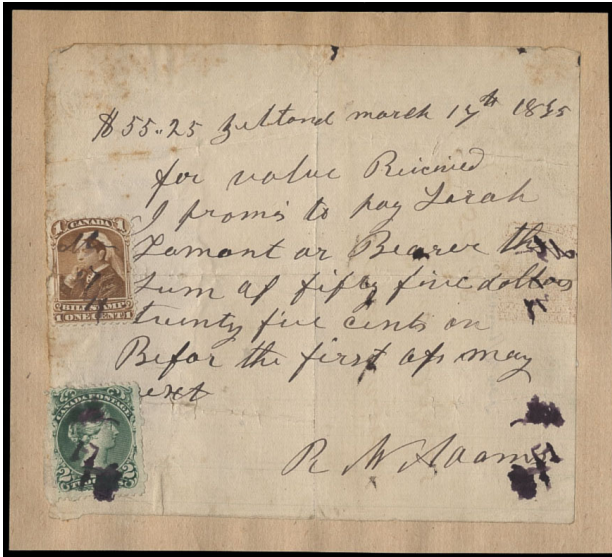 $55.25 march 17th 18
for value Received
I promis to pay Sarah
Lamont or Bearer the
sum of fifty five dollars
twenty five cents on
Befor the first of may
next
R N Adams
CANADA
BILL STAMP
1 ONE CENT 1
CANADA POSTAGE